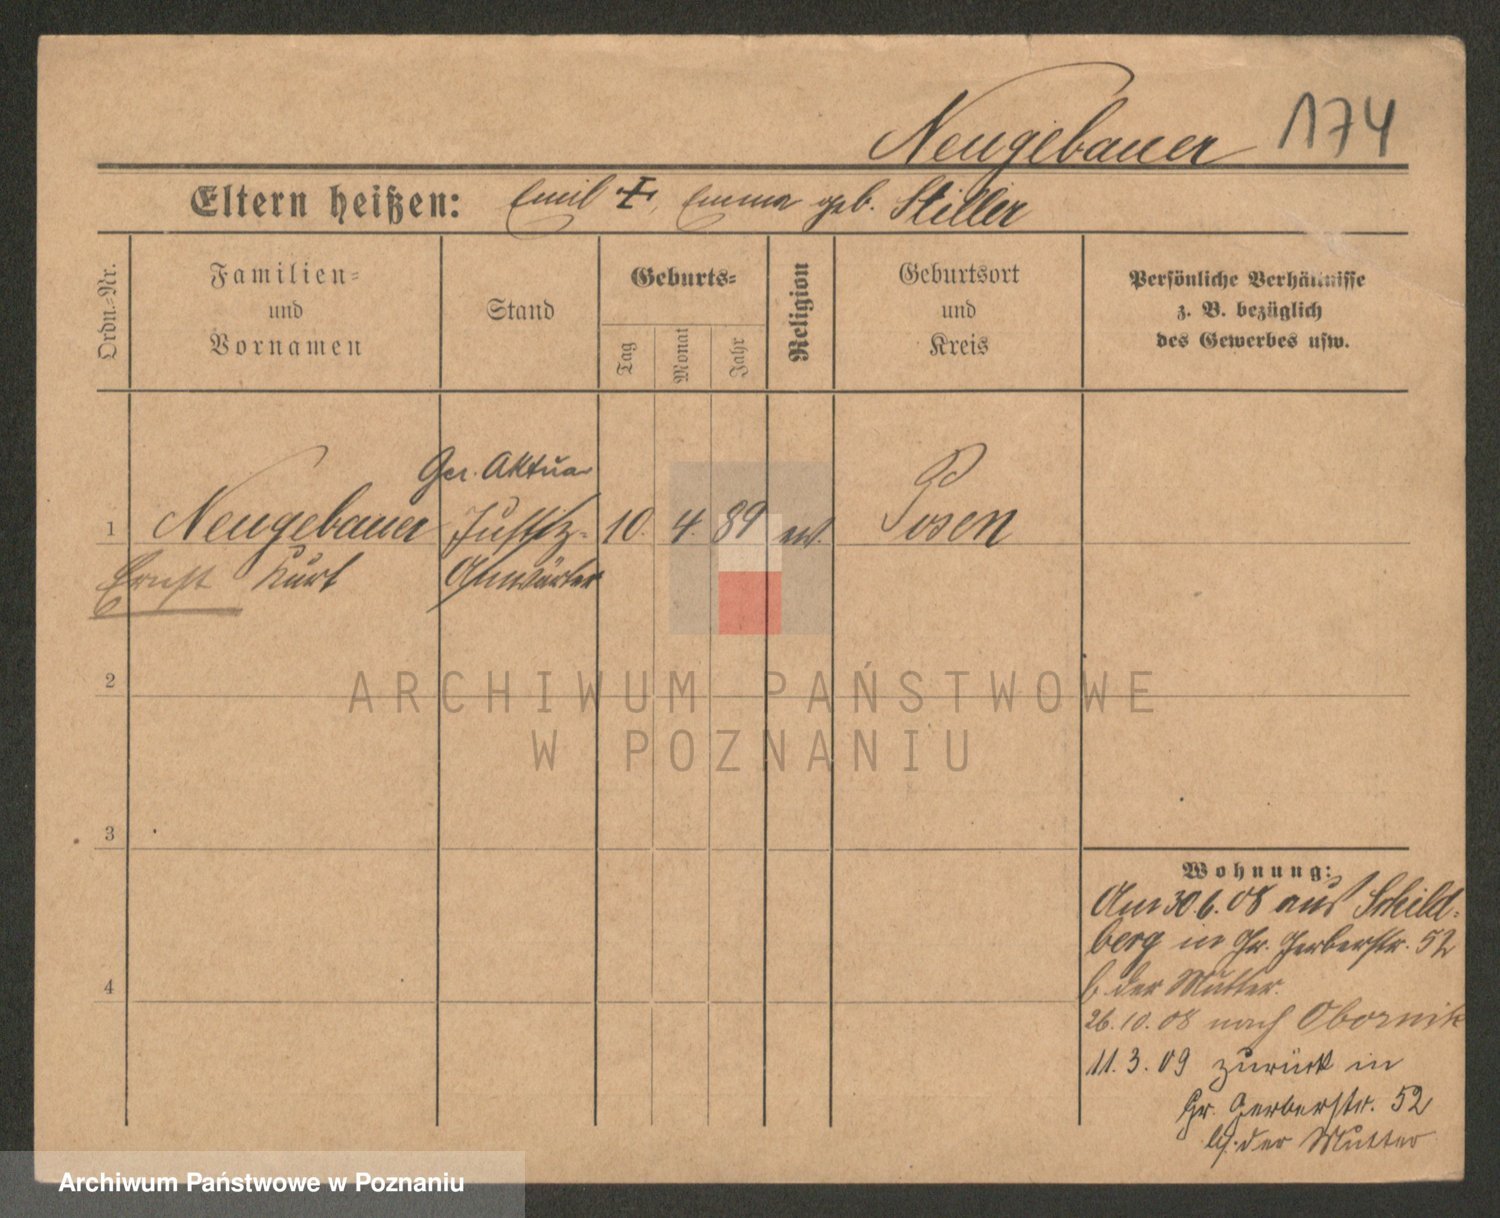 Neugebauer 174
Eltern heißen: Emil †, Emma geb. Stiller
Ordn.-Nr.
Familien-
und
Vornamen
Stand
Geburts-
Tag
Monat
Jahr
Religion
Geburtsort
und
Kreis
Persönliche Verhältnisse
z. B. bezüglich
des Gewerbes usw.
Ger. Aktuar
1 Neugebauer Justiz- 10. 4. 89 ev. Posen
Ernst Kurt Anwärter
2
3
4
Wohnung:
Am 30.6.08 aus Schild-
berg in Gr. Gerberstr. 52
b. der Mutter.
26.10.08 nach Obornik
11.3.09 zurück in
Gr. Gerberstr. 52
b. der Mutter
ARCHIWUM PAŃSTWOWE
W POZNANIU
Archiwum Państwowe w Poznaniu